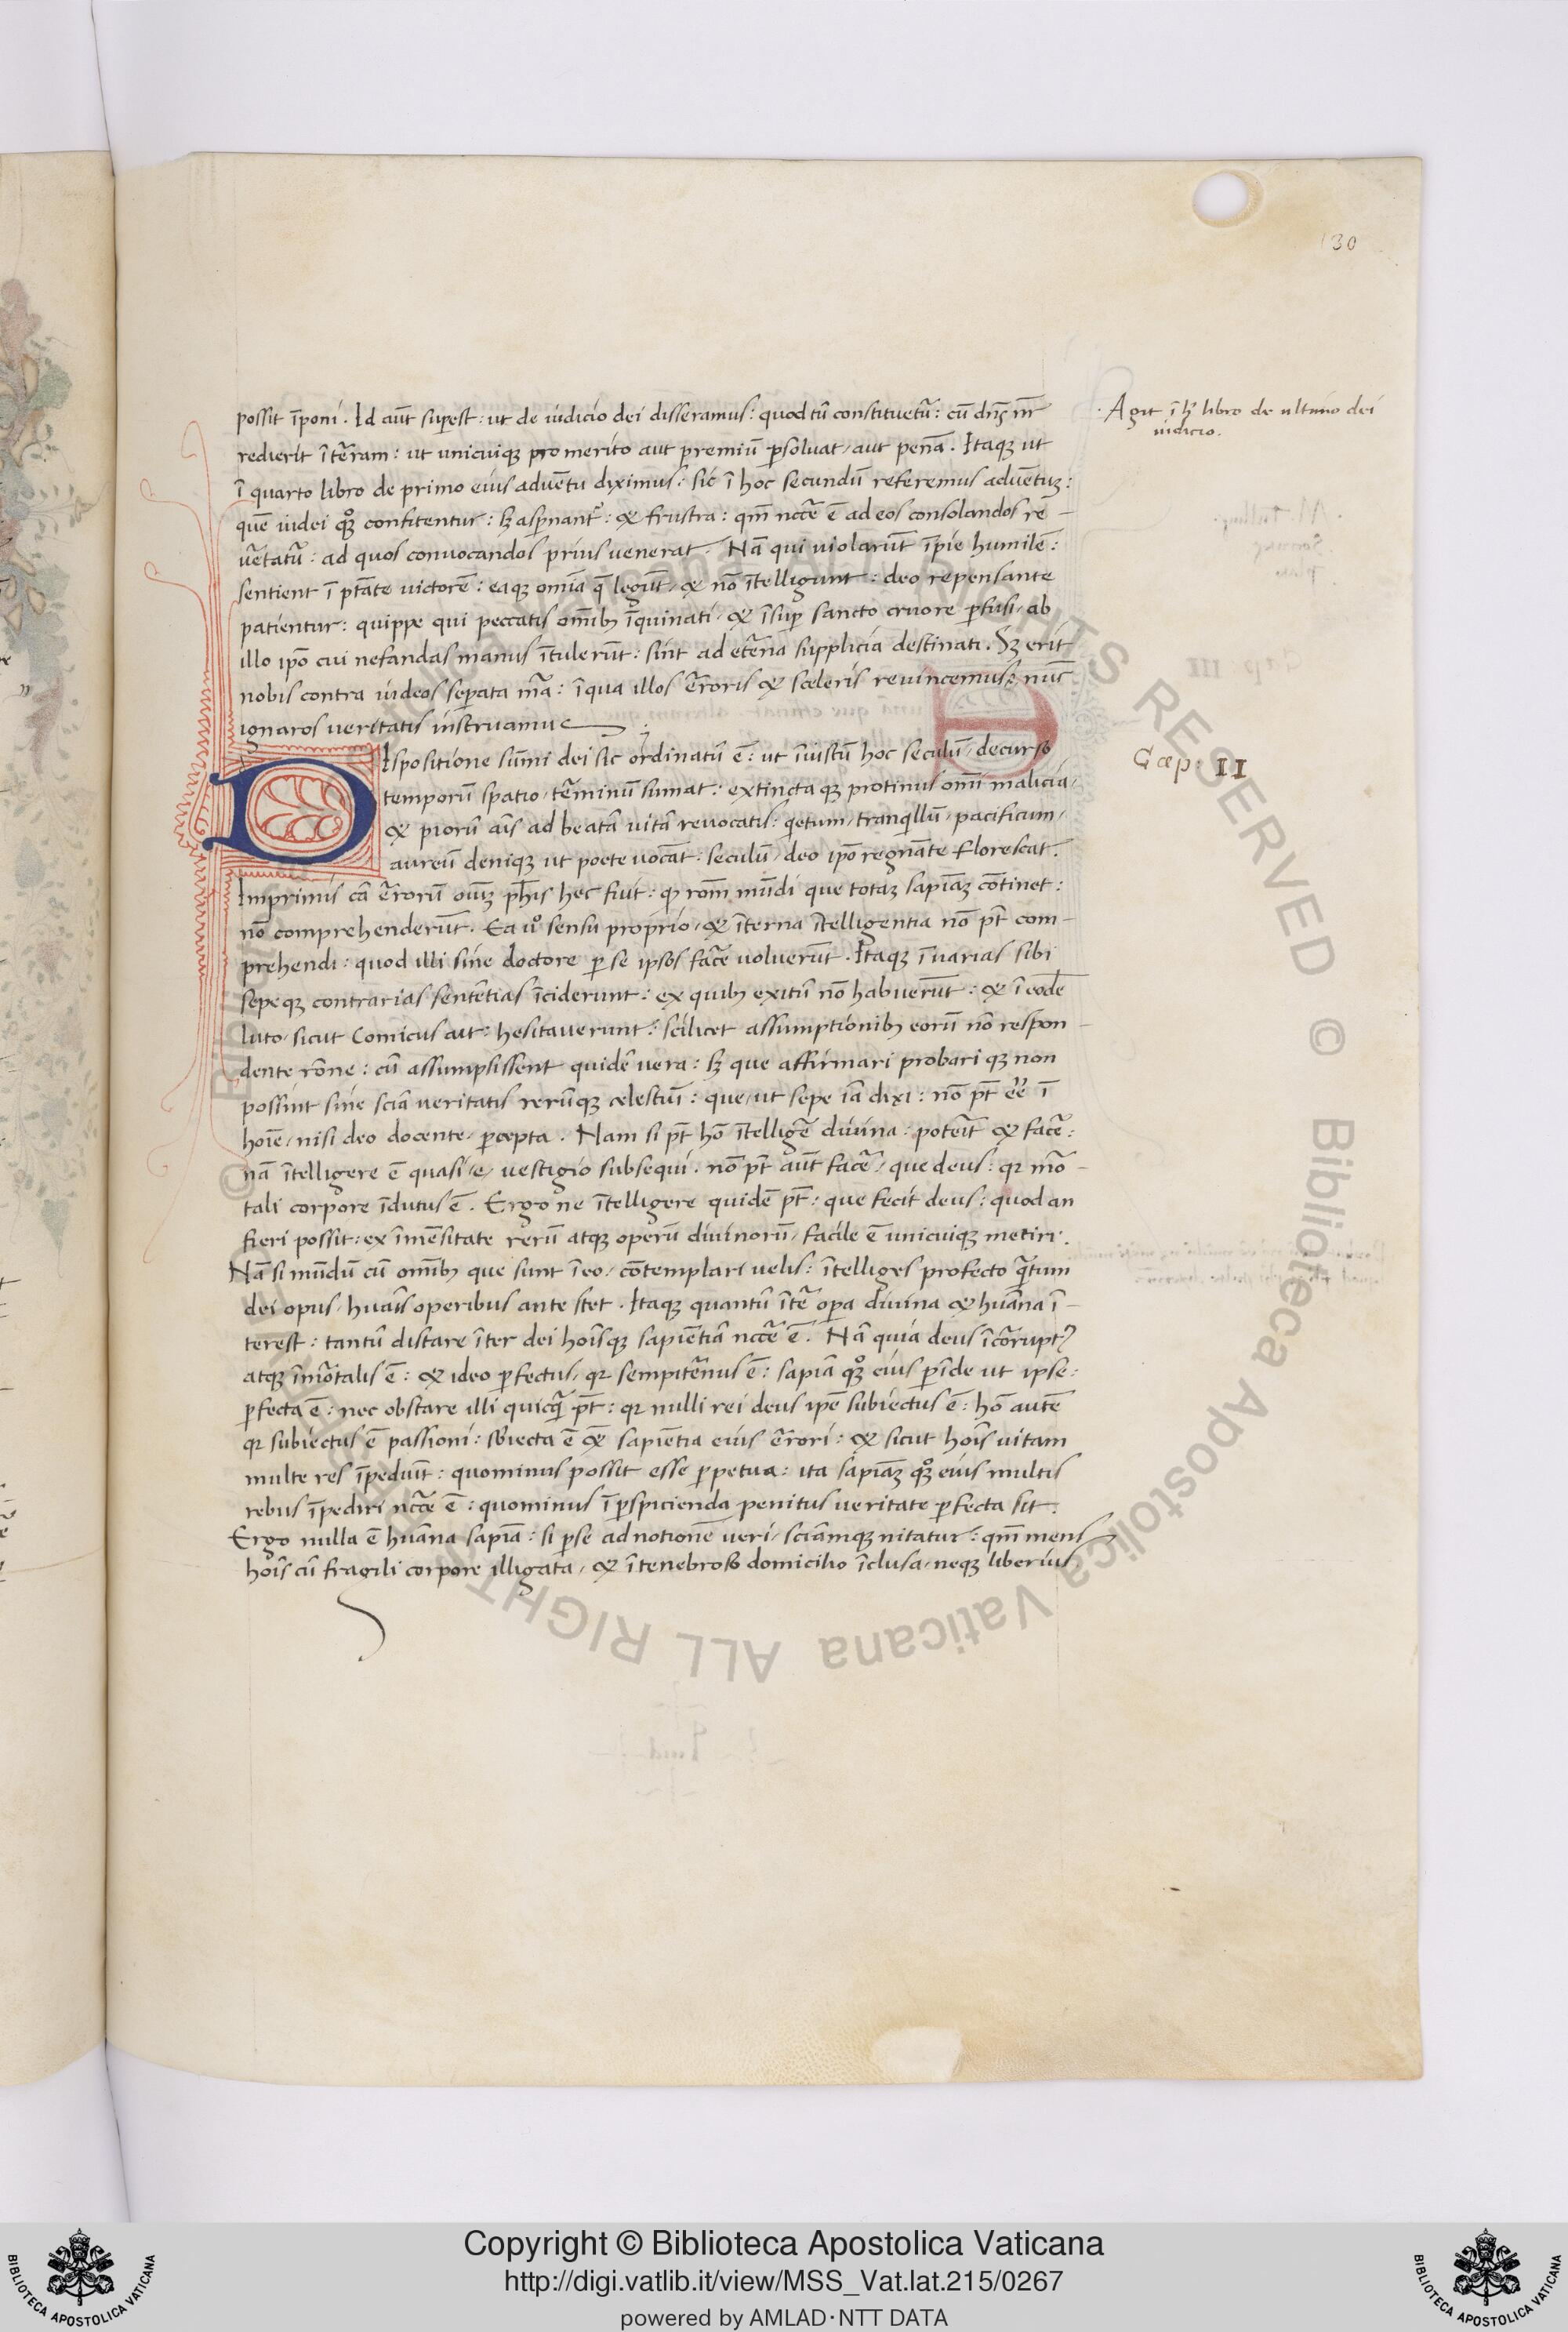 130
possit īponi. Id aūt supest: ut de iudicio dei disseramus: quod tū constituetᷓ: cū dn̄s nr̄
redierit ī tēram: ut unicuiqꝫ pro merito aut premiū psoluat, aut penā. Itaqꝫ ut
ī quarto libro de primo eius aduētu diximus: sic ī hoc secundū referemus aduētuꝫ:
quē iudei qꝫ confitentur: sꝫ aspnantᷓ: & frustra: qm̄ ncc̄e ē ad eos consolandos re-
ūtatᷓ: ad quos conuocandos prius uenerat. Nā qui uiolarūt īpie humilē:
sentient ī ptāte uictorē: eaqꝫ omīa q̄ legūt, & nō ītelligunt: deo repensante
patientur: quippe qui peccatis omībꝫ īquinati, & īsup sancto cruore pfusi, ab
illo ipō cui nefandas manus ītulerūt: sint ad etēna supplicia destinati. Sꝫ erit
nobis contra iudeos sepata mā: ī qua illos ērroris & sceleris reuincemus: nūc
ignaros ueritatis instruamus
DIspositione sūmi dei sic ordinatū ē: ut īiustū hoc seculū, decurso
temporū spatio, tēminū sumat: extinctaqꝫ protinus omī malicia,
& piorū aīs ad beatā uitā reuocatis: qetum, tranqllū, pacificum,
aureū deniqꝫ ut poete uocāt: seculū, deo ipō regnāte florescat.
Imprimis cā ērrorū oīuꝫ ph̄is hec fuit: qꝫ rōm mūdi que totaꝫ sapiāꝫ cōtinet:
nō comprehenderūt. Ea uº sensu proprio, & īterna ītelligentia nō pt̄ com-
prehendi: quod illi sine doctore p se ipsos facē uoluerūt. Itaqꝫ ī uarias sibi
sepeqꝫ contrarias sentētias īciderunt: ex quibꝫ exitū nō habuerūt: & ī eodē
luto, sicut Comicus ait: hesitauerunt: scilicet assumptionibꝫ eorū nō respon-
dente rōne: cū assumpsissent quidē uera: sꝫ que affirmari probariqꝫ non
possint sine sciā ueritatis rerūqꝫ celestiū: que, ut sepe iā dixi: nō pt̄ eē ī
hoīe, nisi deo docente, pcepta. Nam si pt̄ hō ītelligē diuina: poterit & facē:
nā ītelligere ē quasi, e, uestigio subsequi. nō pt̄ aūt facē, que deus: qr mō-
tali corpore īdutus ē. Ergo ne ītelligere quidē pt̄: que fecit deus: quod an
fieri possit: ex īmēsitate rerū atqꝫ operū diuinorū, facile ē unicuiqꝫ metiri.
Nā si mūdū cū omībꝫ que sunt ī eo, cōtemplari uelis: ītelliges profecto qᷓtum
dei opus, huāis operibus ante stet. Itaqꝫ quantū ītē opa diuina & huāna ī-
terest: tantū distare īter dei hoīsqꝫ sapiētiā ncc̄e ē. Nā quia deus īcōrruptꝰ
atqꝫ īmōtalis ē: & ideo pfectus, qr sempitēnus ē: sapiā qꝫ eius pīde ut ipse:
pfecta ē: nec obstare illi quicqᷓ pt̄: qr nulli rei deus ipē subiectus ē: hō autē
qr subiectus ē passioni: sbiecta ē & sapiētia eius ērrori: & sicut hoīs uitam
multe res īpediūt: quominus possit esse ppetua: ita sapiāꝫ qꝫ eius multis
rebus īpediri ncc̄e ē: quominus ī pspicienda penitus ueritate pfecta sit.
Ergo nulla ē huāna sapiā: si pse ad notionē ueri, sciāmqꝫ nitatur: qm̄ mens
hoīs cū fragili corpore illigata, & ī tenebroso domicilio īclusa, neqꝫ liberius
. Agit ī h̄ libro de ultimo dei
iudicio.
Cap: II
© Biblioteca Apostolica Vaticana ALL RIGHTS RESERVED
Copyright © Biblioteca Apostolica Vaticana
http://digi.vatlib.it/view/MSS_Vat.lat.215/0267
powered by AMLAD·NTT DATA
BIBLIOTECA APOSTOLICA VATICANA
BIBLIOTECA APOSTOLICA VATICANA